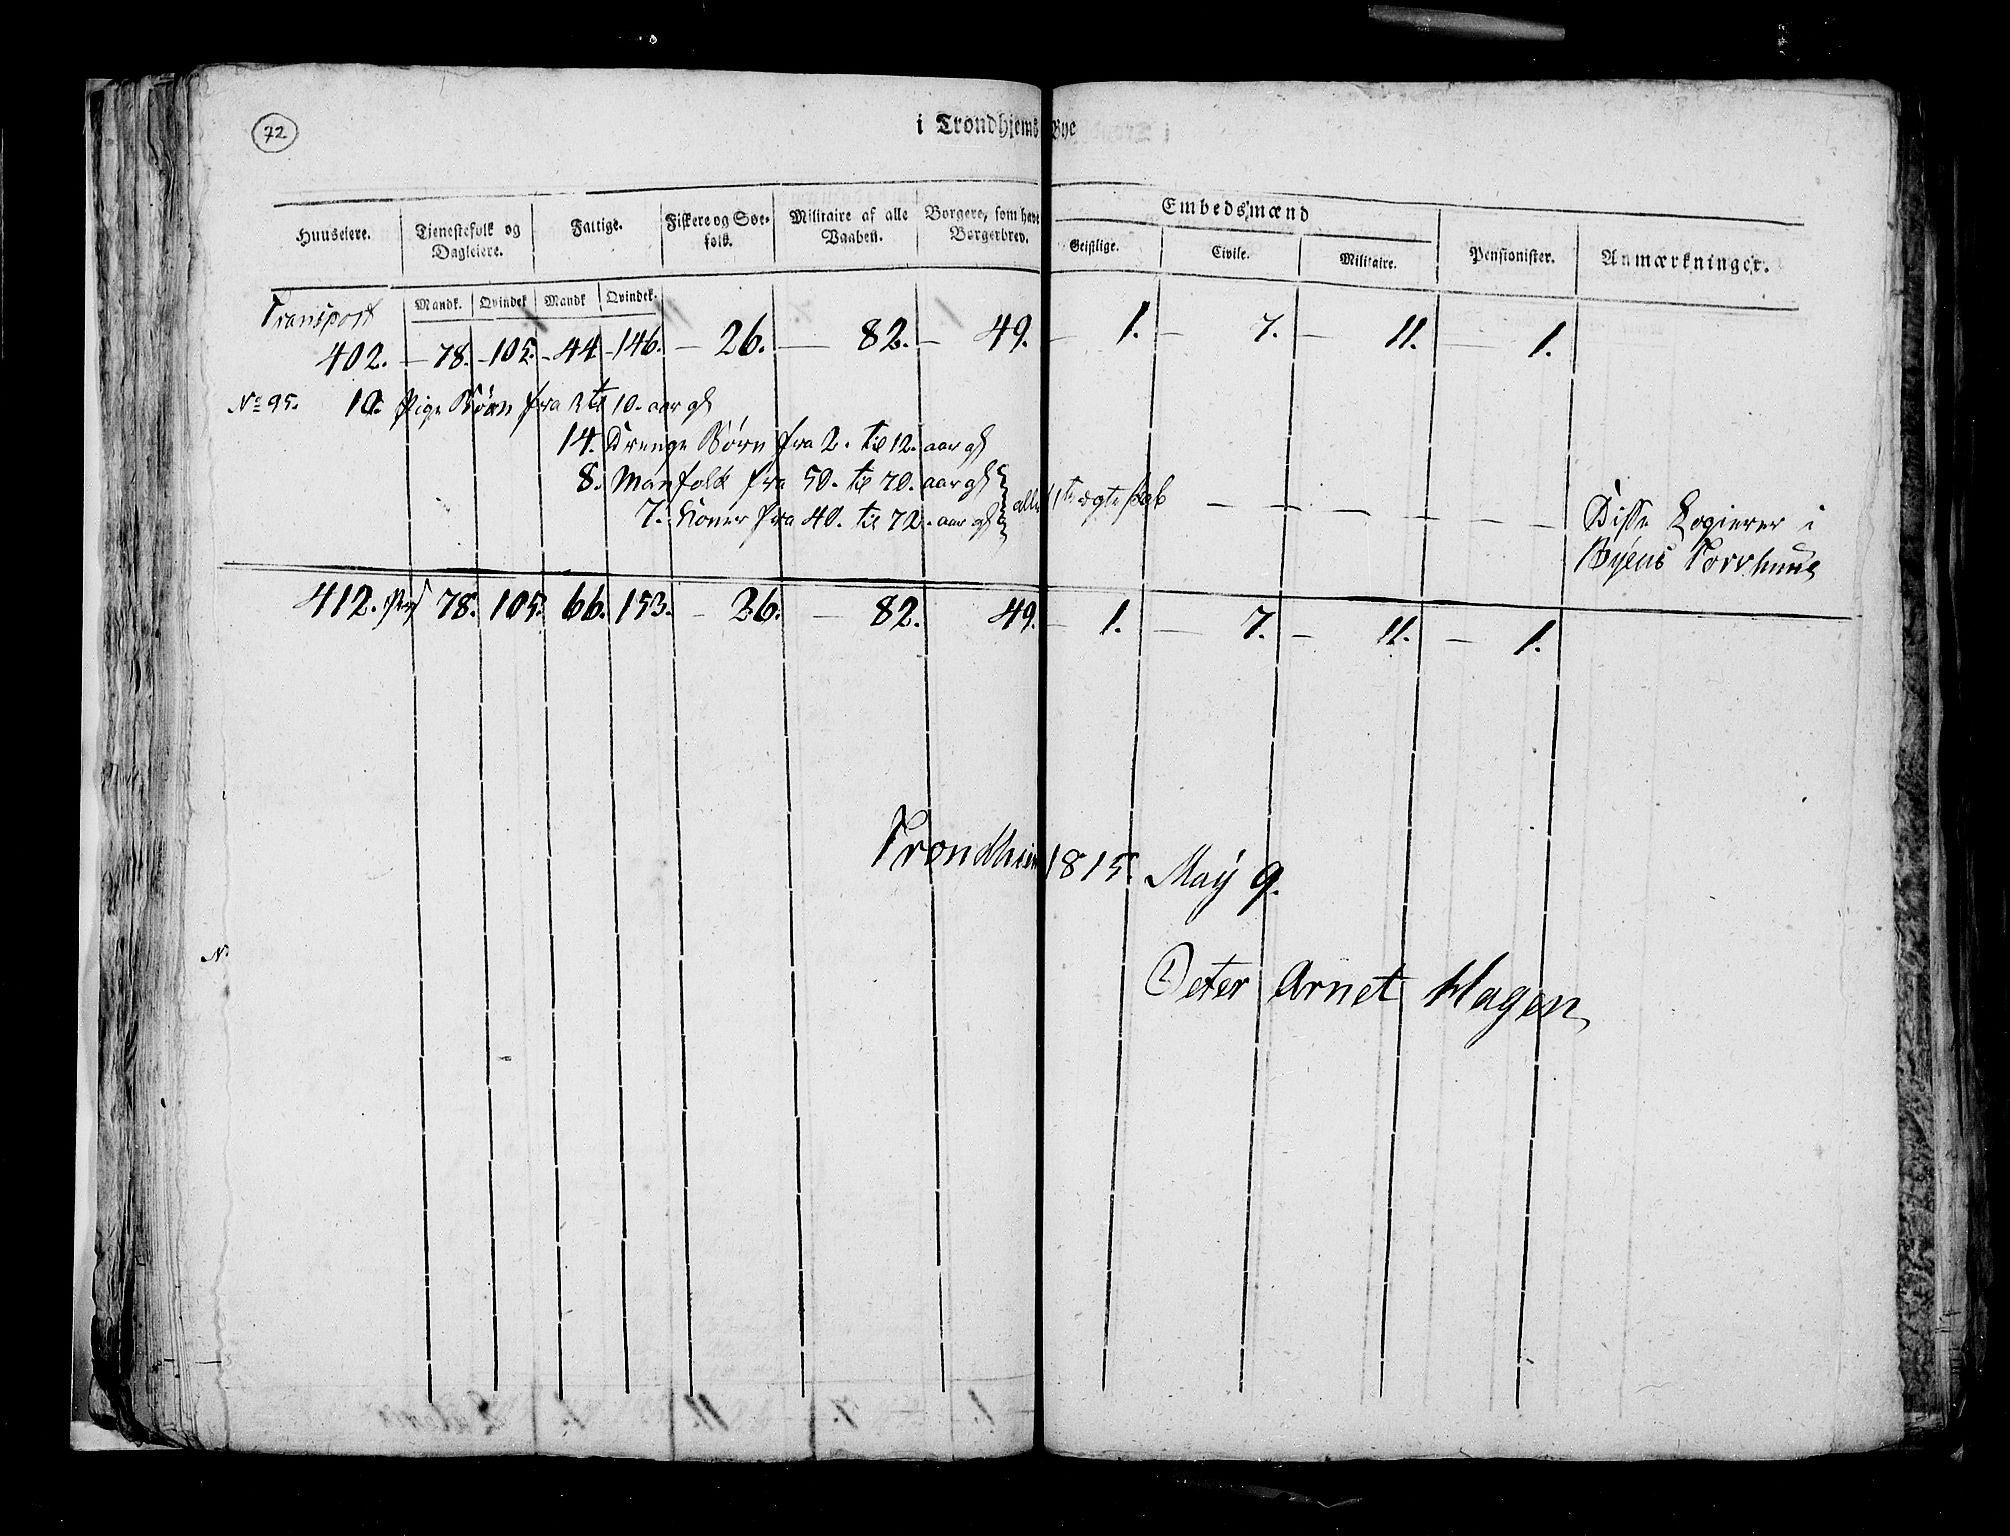 72
i Trondhjems Bye
Huuseiere. Tienestefolk og Dagleiere. Fattige. Fiskere og Søe-folk. Militaire af alle Vaaben. Borgere, som have Borgerbrev. Embedsmænd Pensionister. Anmærkninger.
Geistlige. Civile. Militaire.
Mandk. Qvindek. Mandk Qvindek.
Transport
402. 78. 105. 44. 146. 26. 82. 49. 1. 7. 11. 1.
No 95. 10. Pige Børn fra 2 til 10. aar gl
14. Drenge Børn fra 2. til 12. aar gl
8. Manfolk fra 50. til 70. aar gl
7. Koner fra 40. til 72. aar gl alle 1te ægteskab
Disse Logierer i
Byens Torvhuus
412. 78. 105. 66. 153. 26. 82. 49. 1. 7. 11. 1.
Trondhiem 1815. May 9.
Peter Arnet Hagen
N.